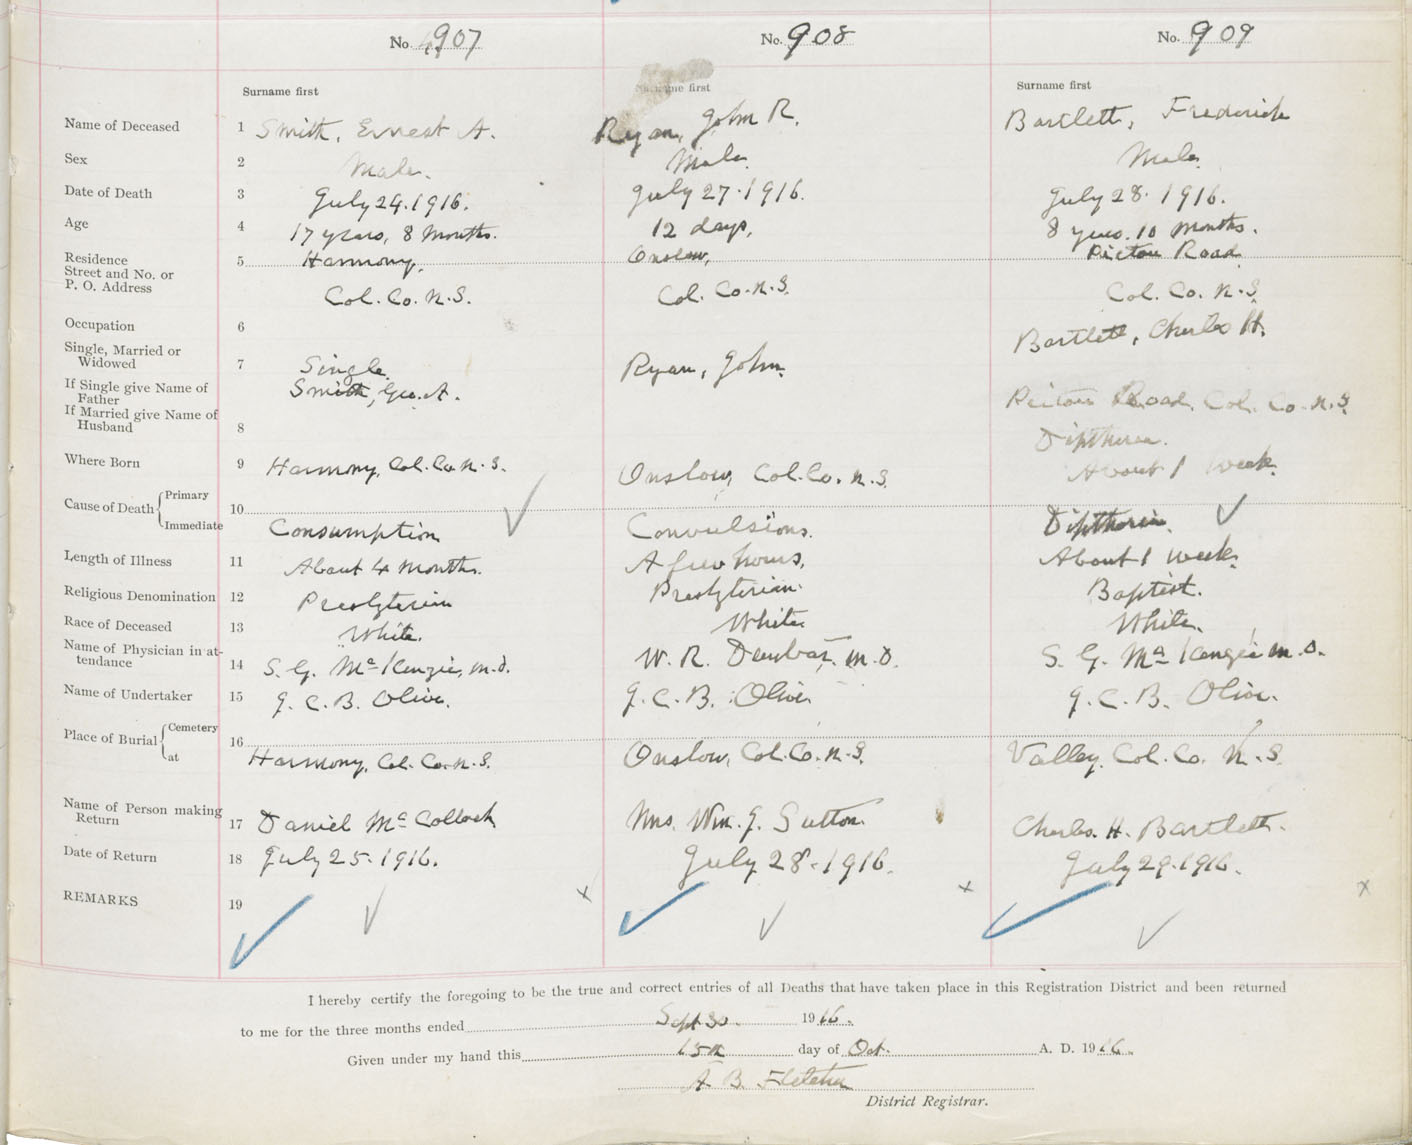 No. 907 No. 908 No. 909
Surname first Surname first Surname first
Name of Deceased 1 Smith, Ernest A. Ryan, John R. Bartlett, Frederick
Sex 2 Male. Male. Male.
Date of Death 3 July 24. 1916. July 27. 1916. July 28. 1916.
Age 4 17 years, 8 Months. 12 days, 8 years. 10 Months.
Residence 5 Harmony, Onslow, Picton Road
Street and No. or
P. O. Address Col. Co. N. S. Col. Co. N. S. Col. Co. N. S.
Occupation 6 Bartlett, Charles H.
Single, Married or
Widowed 7 Single. Ryan, John.
If Single give Name of
Father Smith, Geo. A. Picton Road, Col. Co. N. S.
If Married give Name of
Husband 8 Diptheria.
Where Born 9 Harmony, Col. Co. N. S. Onslow, Col. Co. N. S. About 1 week.
Cause of Death Primary
10
Immediate Consumption Convulsions. Diptheria.
Length of Illness 11 About 4 Months. A few hours. About 1 week.
Religious Denomination 12 Presbyterian Presbyterian Baptist.
Race of Deceased 13 White. White White.
Name of Physician in at-
tendance 14 S. G. McKenzie, M.D. W. R. Dunbar, M.D. S. G. McKenzie M.D.
Name of Undertaker 15 J. C. B. Olive. J. C. B. Olive J. C. B. Olive.
Place of Burial Cemetery
16
at Harmony, Col. Co. N. S. Onslow, Col. Co. N. S. Valley, Col. Co. N. S.
Name of Person making
Return 17 Daniel McCollock Mrs. Wm. J. Sutton. Charles. H. Bartlett.
Date of Return 18 July 25. 1916. July 28. 1916. July 29. 1916.
REMARKS 19
I hereby certify the foregoing to be the true and correct entries of all Deaths that have taken place in this Registration District and been returned
to me for the three months ended Sept 30. 1916.
Given under my hand this 15th day of Oct. A. D. 1916.
A. B. Fletcher
District Registrar.